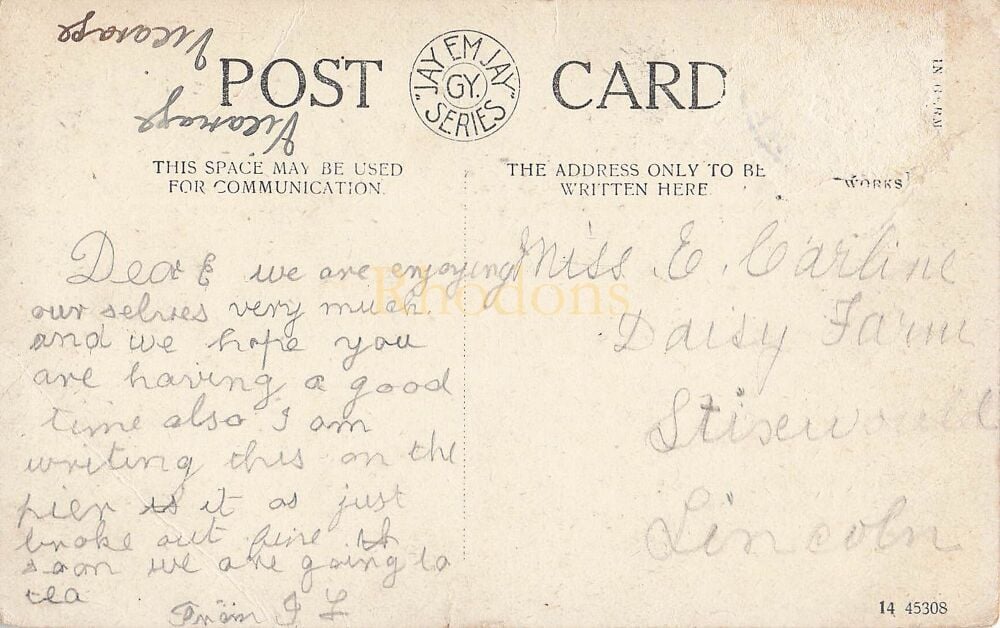 Vicarage
Vicarage
POST CARD
"JAY EM JAY"
GY.
SERIES
THIS SPACE MAY BE USED
FOR COMMUNICATION.
THE ADDRESS ONLY TO BE
WRITTEN HERE
WORKS
Dear E we are enjoying
our selves very much
and we hope you
are having a good
time also I am
writing this on the
pier is it as just
broke out fine
soon we are going to
tea
From
Miss. E. Carline
Daisy Farm
Stixwould
Lincoln
Rhodons
14 45308